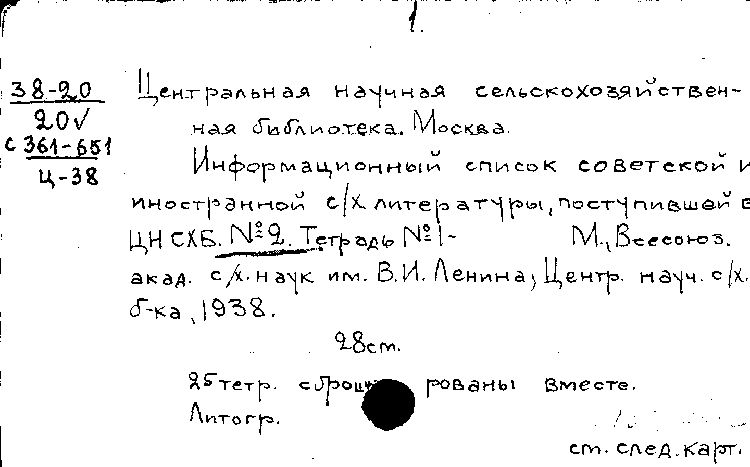 1.
38-20
20√
с 361-651
Ц-38
Центральная научная сельскохозяйствен-
ная библиотека. Москва.
Информационный список советской и
иностранной с/х литературы, поступившей в
ЦНСХБ. № 2. Тетрадь № 1-   М., Всесоюз.
акад. с/х. наук им. В.И. Ленина, Центр. науч. с/х.
б-ка, 1938.
28 ст.
25 тетр. вместе.
Литогр.
см. след. карт.